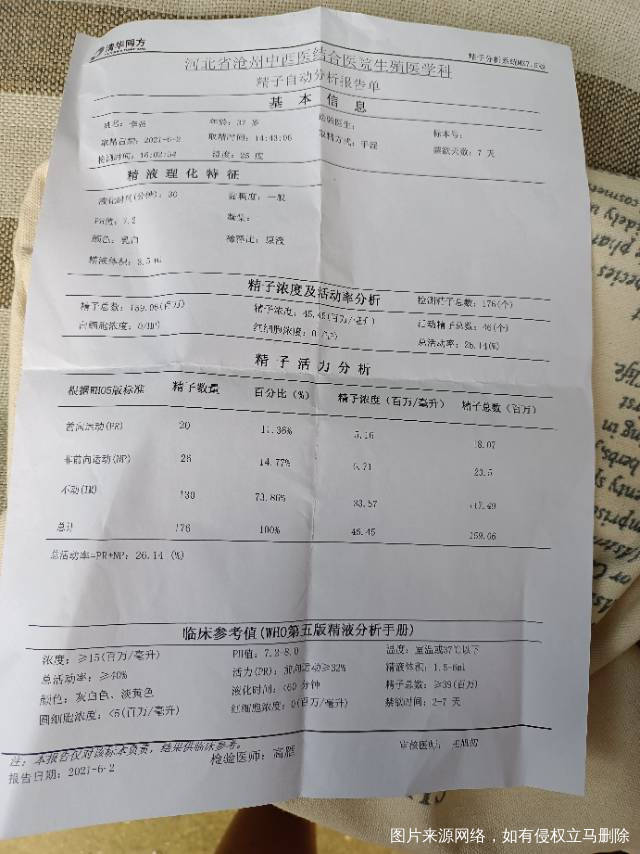 清华同方
精子分析系统
河北省沧州中西医结合医院生殖医学科
精子自动分析报告单
基本信息
姓名: 年龄: 37 岁 标本号:
取精日期: 2021-6-2 取精时间: 14:43:06 取精方式: 手淫 禁欲天数: 7 天
检测时间: 16:02:54 温度: 25 度
精液理化特征
液化时间(分钟): 30 黏稠度: 一般
PH值: 7.2 凝集:
颜色: 乳白 稀释比: 原液
精液体积: 3.5 ml
精子浓度及活动率分析
精子总数: 159.06(百万) 精子浓度: 45.45(百万/毫升) 检测精子总数: 176(个)
白细胞浓度: 红细胞浓度: 活动精子总数: 46(个)
总活动率: 26.14(%)
精子活力分析
根据WHO5版标准 精子数量 百分比(%) 精子浓度(百万/毫升) 精子总数(百万)
前向运动(PR) 20 11.36% 5.16 18.07
非前向运动(NP) 26 14.77% 6.71 23.5
不动(IM) 130 73.86% 33.57 117.49
总计 176 100% 45.45 159.06
总活动率=PR+NP: 26.14 (%)
临床参考值(WHO第五版精液分析手册)
浓度: ≥15(百万/毫升) PH值: 7.2-8.0 温度: 室温或37℃以下
总活动率: ≥40% 活力(PR): 前向运动≥32% 精液体积: 1.5-6ml
颜色: 灰白色、淡黄色 液化时间: <60 分钟 精子总数: ≥39(百万)
圆细胞浓度: <5(百万/毫升) 红细胞浓度: 0(百万/毫升) 禁欲时间: 2-7 天
注: 本报告仅对该标本负责, 结果供临床参考。
报告日期: 2021-6-2 检验医师: 审核医师:
图片来源网络，如有侵权立马删除